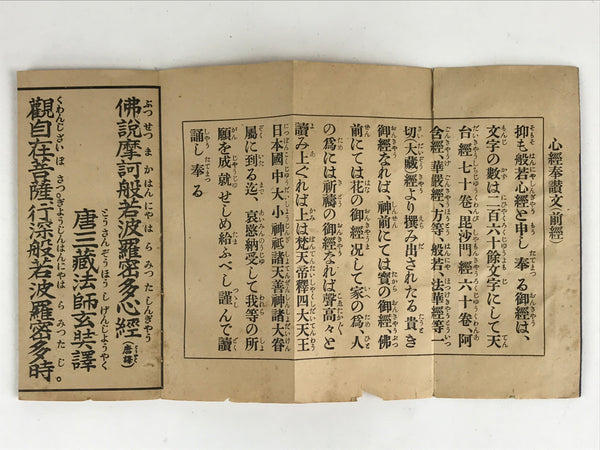 心經奉讃文(前經)
抑も般若心經と申し奉る御經は、
文字の數は二百六十餘文字にして天
台經七十卷毘沙門經六十卷阿
含經、華嚴經、方等、般若、法華經等一
切(大藏)經より撰み出されたる貴き
御經なれば、神前にては寳の御經、佛
前にては花の御經況して(家の爲、)人
の爲には祈禱の御經なれば聲高々と
讀み上ぐれば上は梵天帝釋四大天王
日本國中大小神祇諸天善神諸大眷
屬に到る迄、哀愍納受して我等の所
願を成就せしめ給ふべし謹んで讀
誦し奉る
佛說摩訶般若波羅密多心經(唐譯)
唐三藏法師玄奘譯
觀自在菩薩。行深般若波羅密多時。